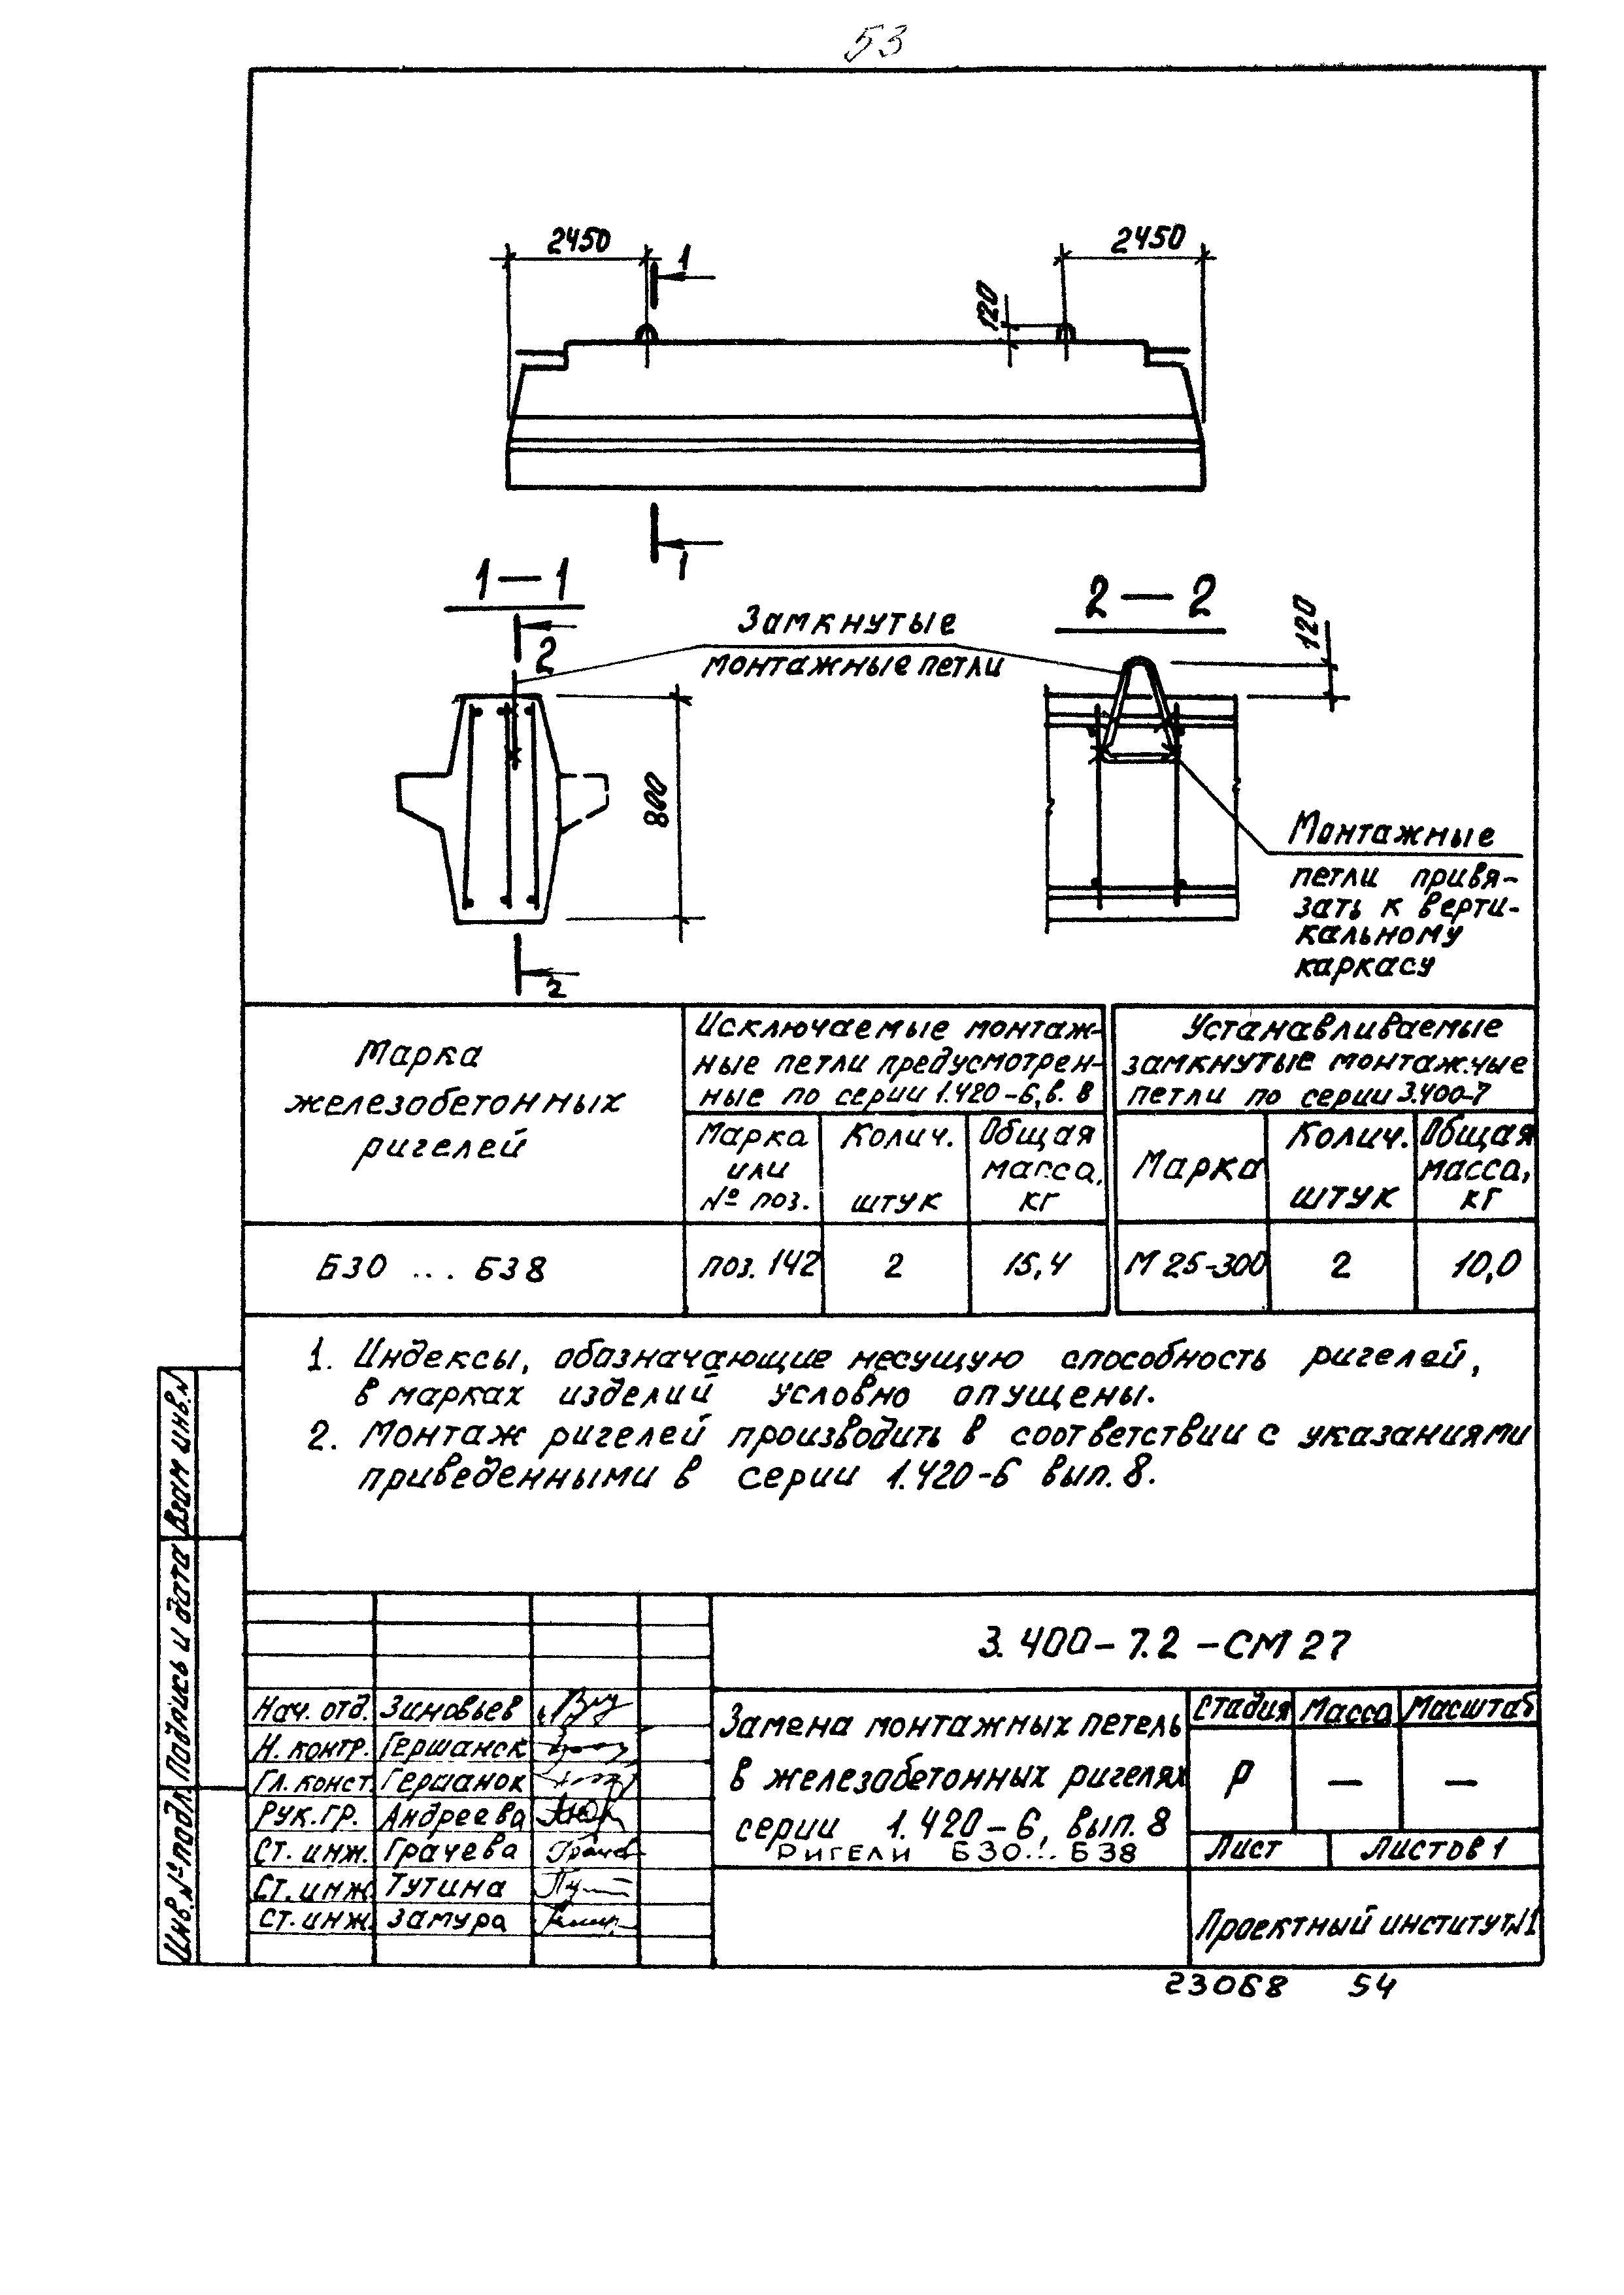 53
2450
1
2450
120
1
1-1
2
Замкнутые
монтажные петли
2-2
120
800
Монтажные
петли привя-
зать к верти-
кальному
каркасу
2
Марка
железобетонных
ригелей
Исключаемые монтаж-
ные петли предусмотрен-
ные по серии 1.420-6, в. 8
Устанавливаемые
замкнутые монтажные
петли по серии 3.400-7
Марка
или
№ поз.
Колич.
штук
Общая
масса,
кг
Марка
Колич.
штук
Общая
масса,
кг
Б30 ... Б38
поз. 142
2
15,4
М 25-300
2
10,0
1. Индексы, обозначающие несущую способность ригелей,
в марках изделий условно опущены.
2. Монтаж ригелей производить в соответствии с указаниями
приведенными в серии 1.420-6 вып. 8.
Взам инв. №
Подпись и дата
Инв. № подл.
3.400-7.2-СМ 27
Нач. отд. Зиновьев
Н. контр. Гершанок
Гл. конст. Гершанок
Рук. гр. Андреева
Ст. инж. Грачева
Ст. инж. Тутина
Ст. инж. Замура
Замена монтажных петель
в железобетонных ригелях
серии 1.420-6, вып. 8
Ригели Б30...Б38
Стадия Масса Масштаб
Р — —
Лист Листов 1
Проектный институт №1
23068 54